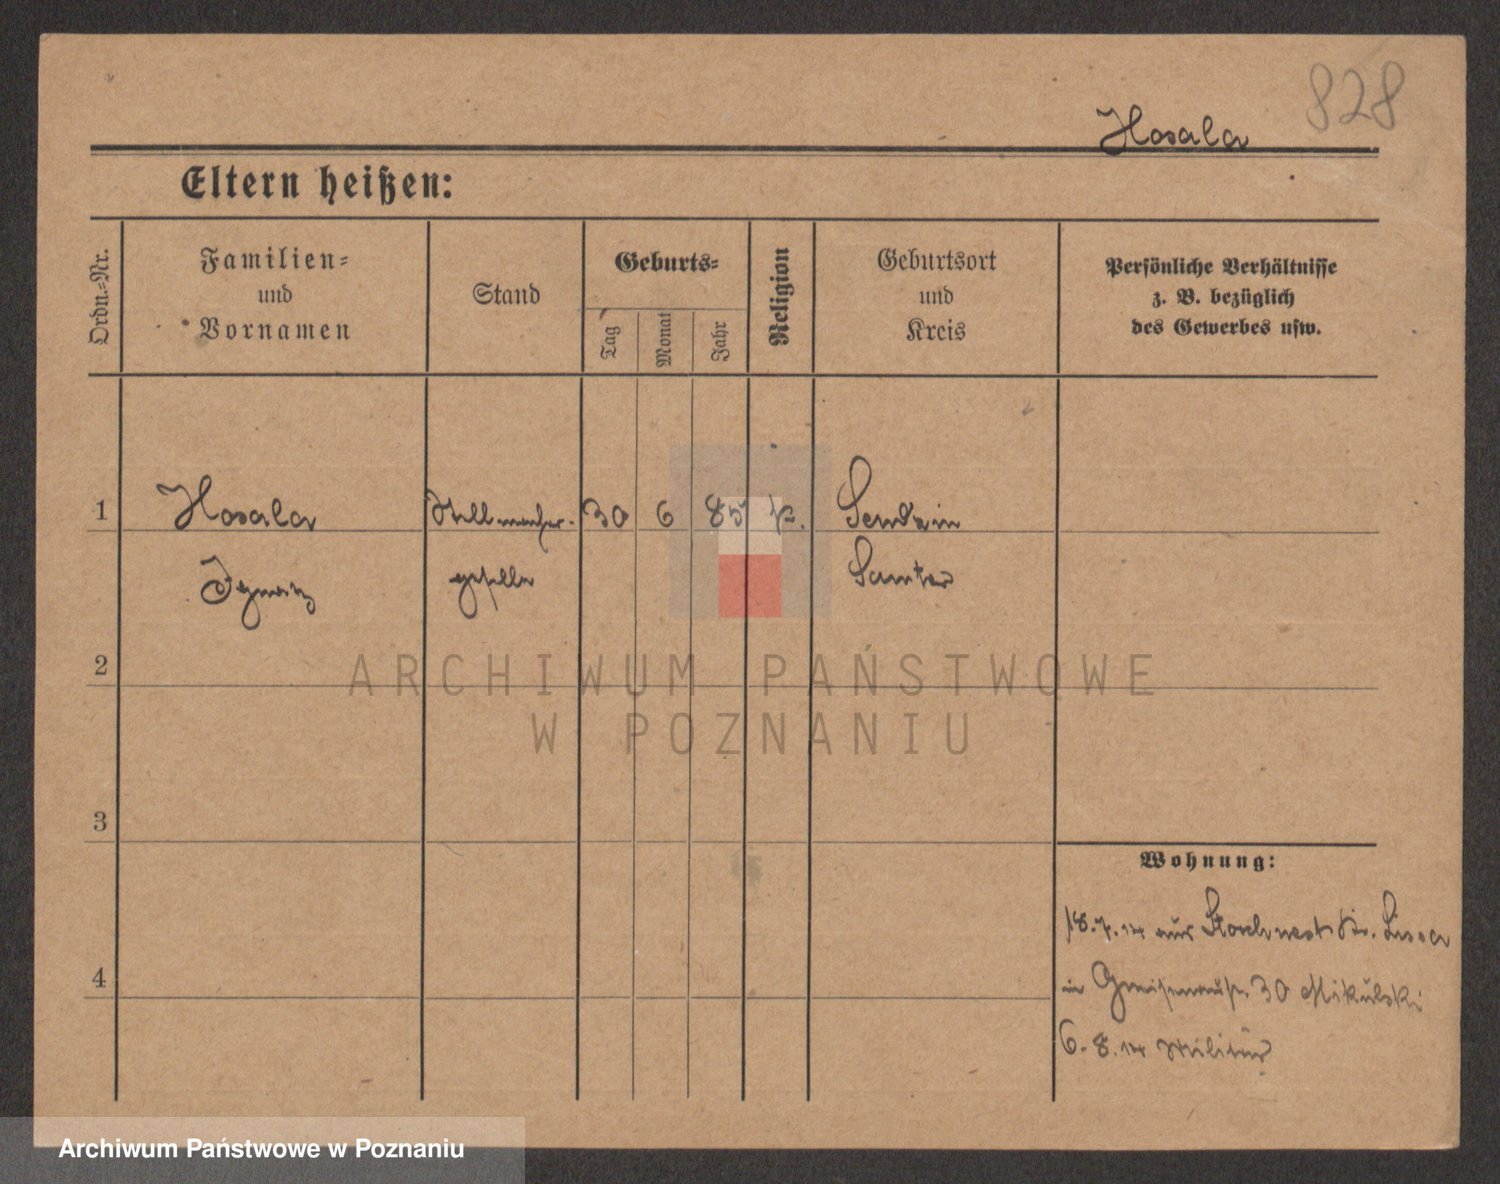 828
Hosala
Eltern heißen:
Ordn.-Nr.
Familien-
und
Vornamen
Stand
Geburts-
Tag
Monat
Jahr
Religion
Geburtsort
und
Kreis
Persönliche Verhältnisse
z. B. bezüglich
des Gewerbes usw.
1 Hosala Stellmacher- 30 6 85 k.
Ignatz geselle Samter
2
ARCHIWUM PAŃSTWOWE
W POZNANIU
3
Wohnung:
18.7.14 aus Storchnest Kr. Lissa
4
in 30 Mikulski
6.8.14 Militär
Archiwum Państwowe w Poznaniu